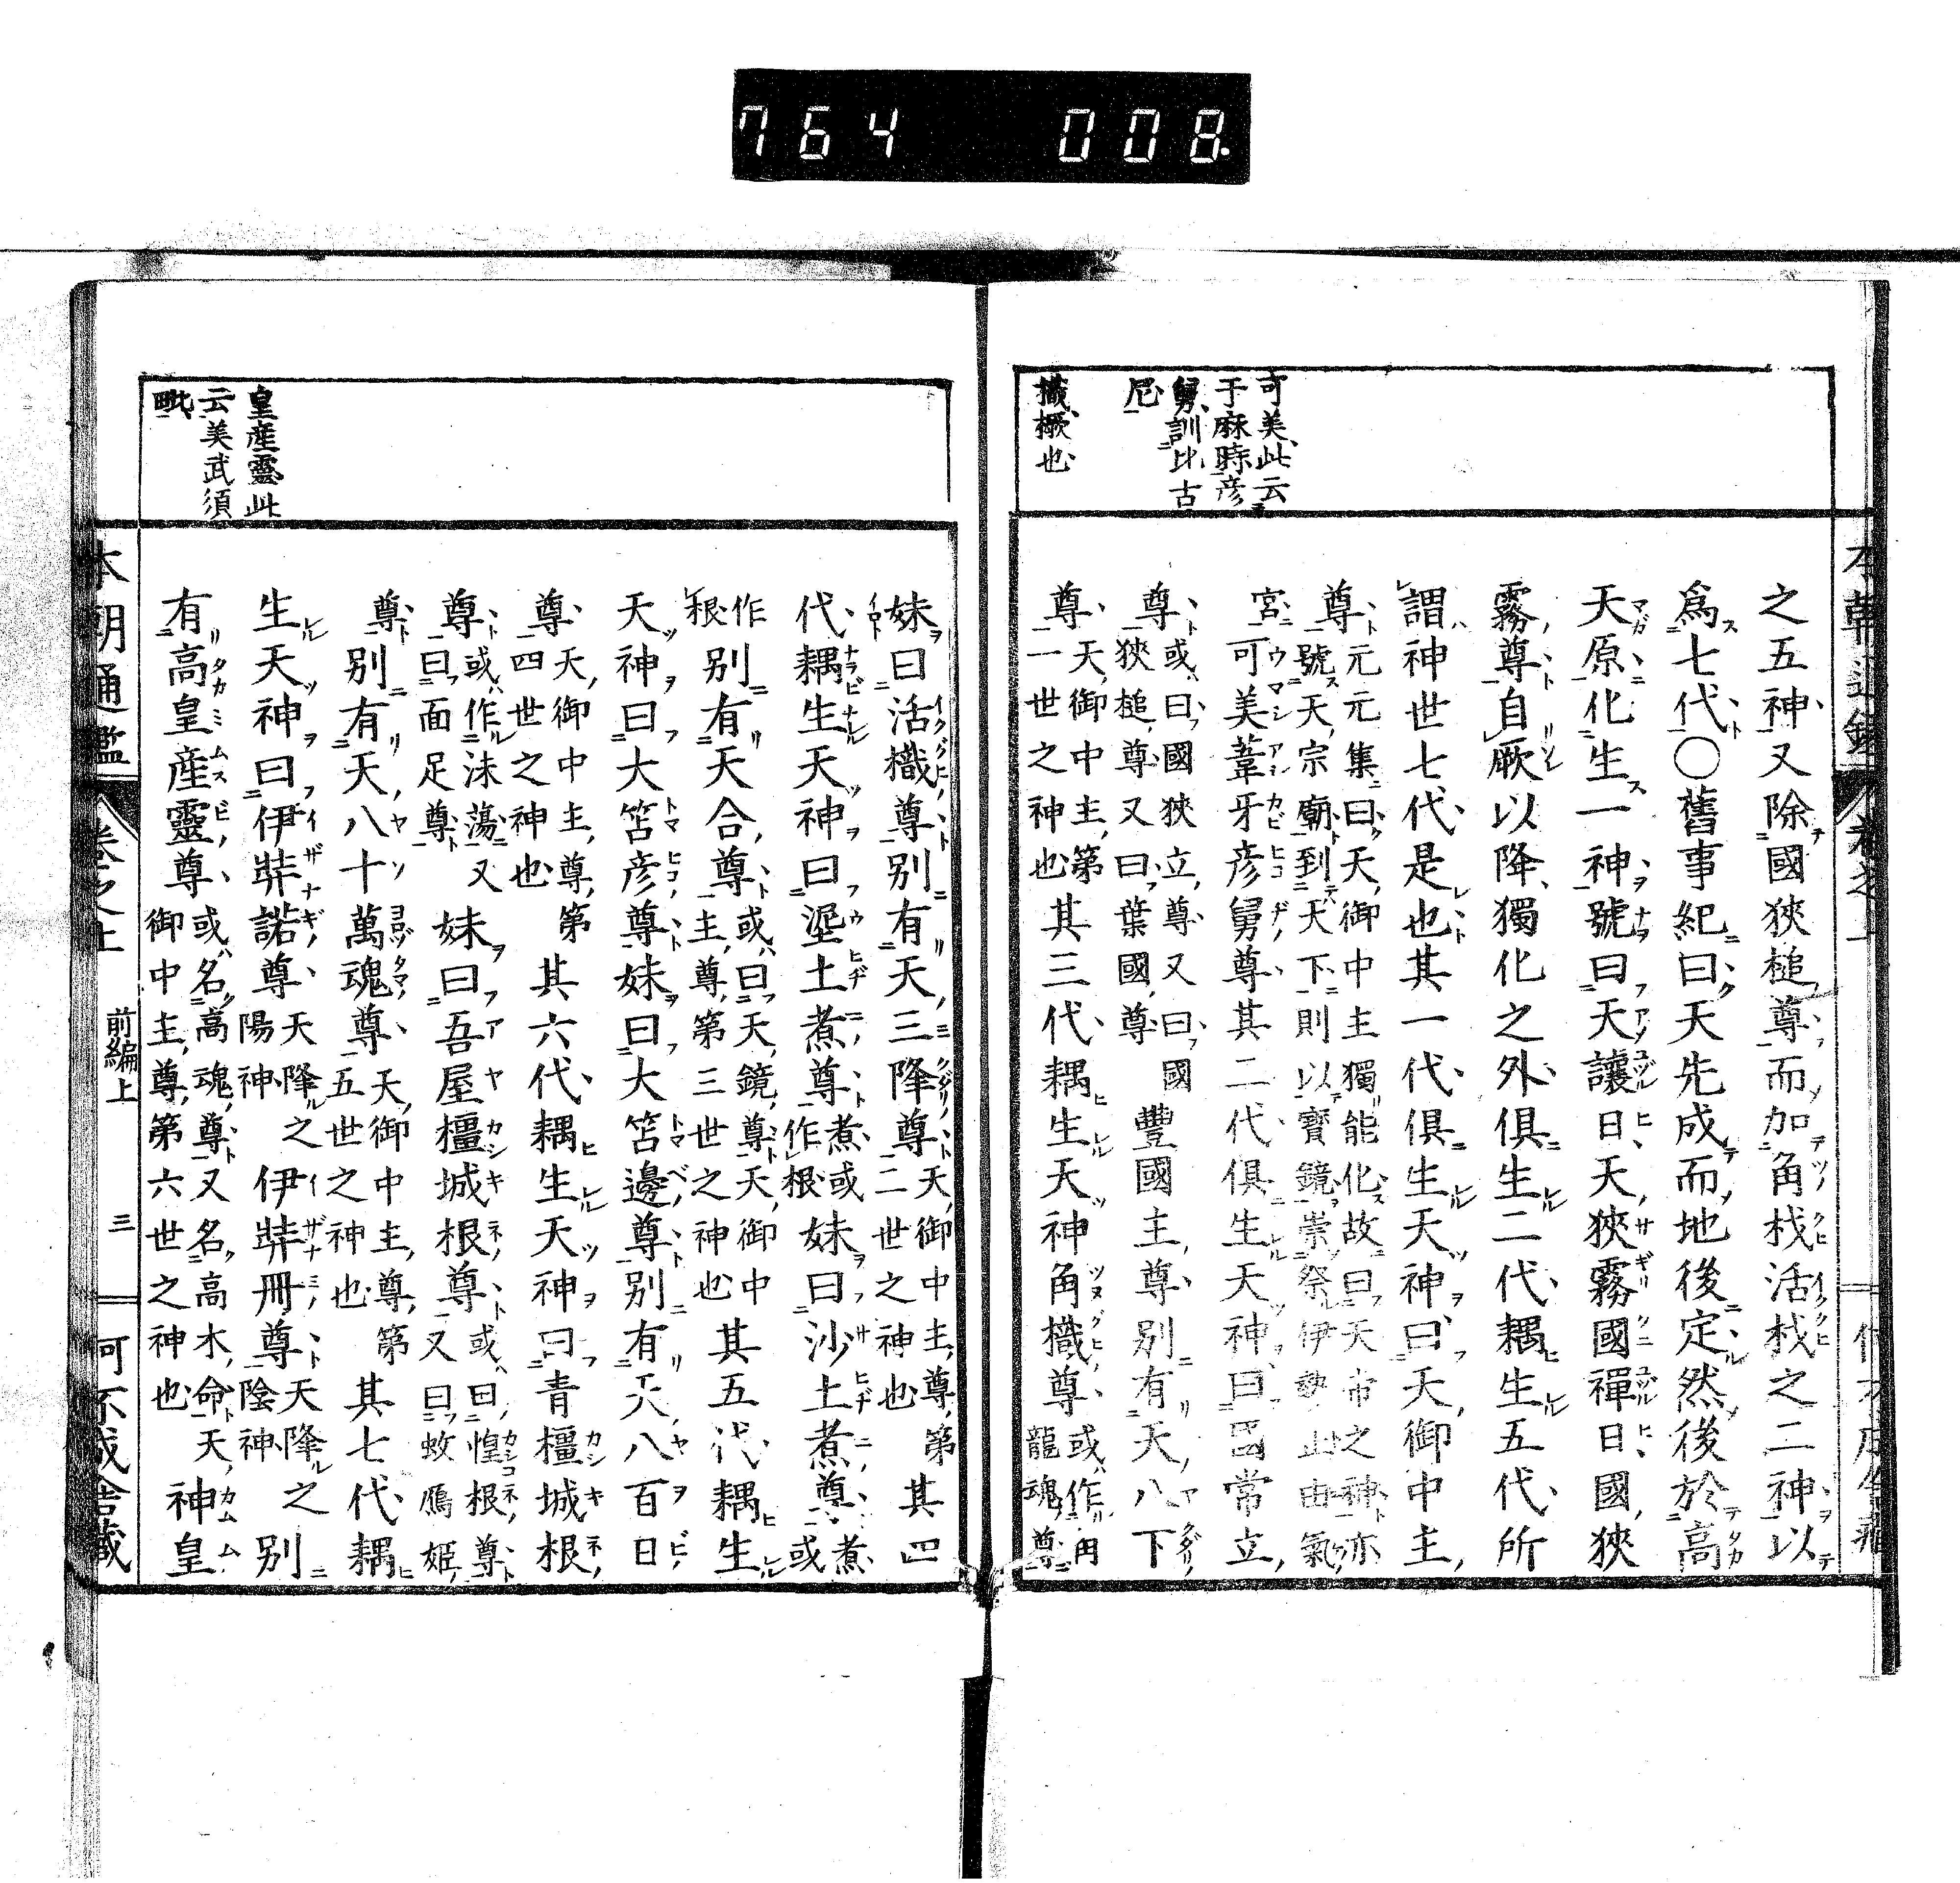 764 008
可美此云
于麻時彦
舅訓比古
尼
樴橛也
之五神又除國狹槌尊而加角杙活杙之二神以
爲七代〇舊事紀曰天先成而地後定然後於高
天原化生一神號曰天讓日天狹霧國禪日國狹
霧尊自厥以降獨化之外俱生二代耦生五代所
謂神世七代是也其一代俱生天神曰天御中主
尊元元集曰天御中主獨能化故曰天帝之神亦
號天宗廟到天下則以寳鏡崇祭伊勢山田氣
宮可美葦牙彦舅尊其二代俱生天神曰國常立
尊或曰國狹立尊又曰國
狹槌尊又曰葉國尊豐國主尊別有天八下
尊天御中主尊第
一世之神也其三代耦生天神角樴尊或作角
龍魂尊
妹曰活樴尊別有天三降尊天御中主尊第
二世之神也其四
代耦生天神曰埿土煮尊煮或
作根妹曰沙土煮尊煮或
作
根別有天合尊或曰天鏡尊天御中
主尊第三世之神也其五代耦生
天神曰大筥彦尊妹曰大筥邊尊別有天八百日
尊天御中主尊第
四世之神也其六代耦生天神曰青橿城根
尊或作沫蕩又
曰面足尊妹曰吾屋橿城根尊或曰惶根尊
又曰蚊鴈姬
尊別有天八十萬魂尊天御中主尊第
五世之神也其七代耦
生天神曰伊弉諾尊天降之
陽神伊弉冊尊天降之
陰神別
有高皇産靈尊或名高魂尊又名高木命天
御中主尊第六世之神也神皇
皇産靈此
云美武須
毗
本朝通鑑 卷之上 前編上 三